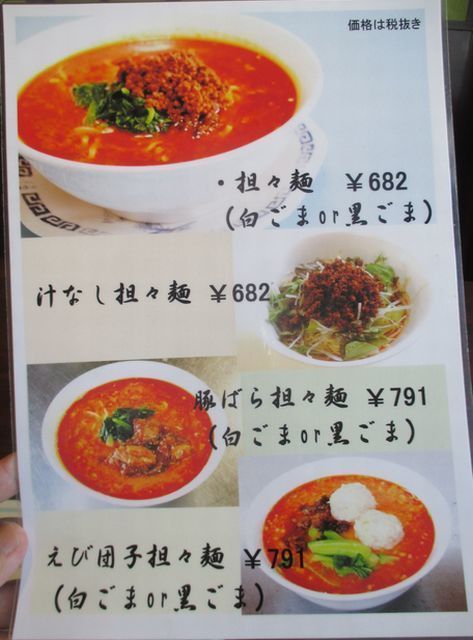 価格は税抜き
・担々麺 ￥682
(白ごまor黒ごま)
汁なし担々麺 ￥682
豚ばら担々麺 ￥791
(白ごまor黒ごま)
えび団子担々麺 ￥791
(白ごまor黒ごま)